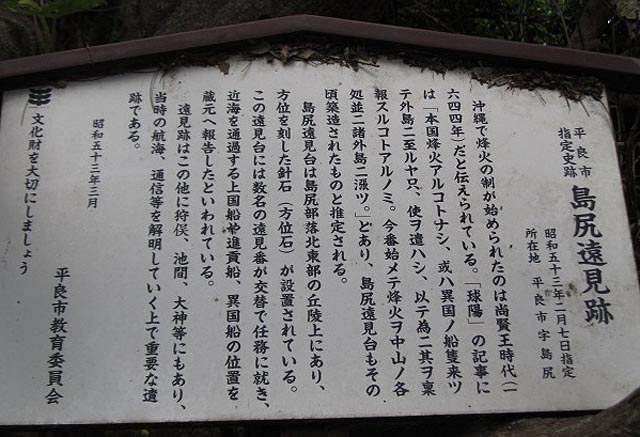 平良市
指定史跡
島尻遠見跡
昭和五十三年二月七日指定
所在地 平良市字島尻
沖縄で烽火の制が始められたのは尚賢王時代(一
六四四年)だと伝えられている。「球陽」の記事に
は「本国烽火アルコトナシ、或ハ異国ノ船隻来ツ
テ外島ニ至ルヤ只、使ヲ遣ハシ、以テ為ニ其ヲ稟
報スルコトアルノミ。今番始メテ烽火ヲ中山ノ各
処並ニ諸外島ニ漲ツ。」とあり、島尻遠見台もその
頃築造されたものと推定される。
島尻遠見台は島尻部落北東部の丘陵上にあり、
方位を刻した針石(方位石)が設置されている。
この遠見台には数名の遠見番が交替で任務に就き、
近海を通過する上国船や進貢船、異国船の位置を
蔵元へ報告したといわれている。
遠見跡はこの他に狩俣、池間、大神等にもあり、
当時の航海、通信等を解明していく上で重要な遺
跡である。
昭和五十三年三月
文化財を大切にしましょう
平良市教育委員会